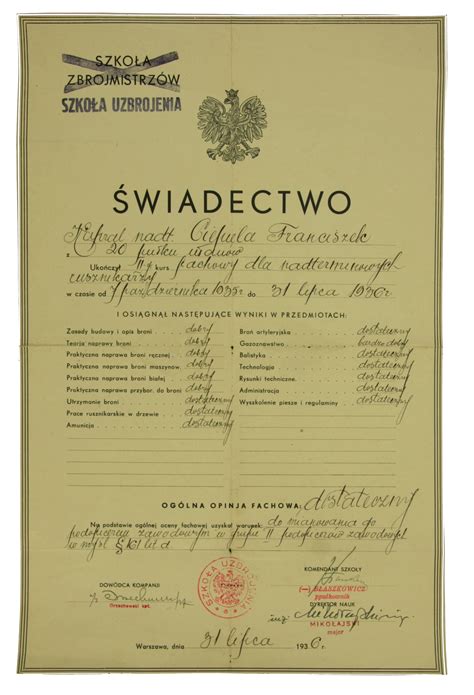 SZKOŁA
ZBROJMISTRZÓW
SZKOŁA UZBROJENIA
ŚWIADECTWO
Kapral nadt. Franciszek
z 20 pułku ułanów
Ukończył II kurs fachowy dla nadterminowych
rusznikarzy
w czasie od 7 października 1935 r do 31 lipca 1936 r
I OSIĄGNĄŁ NASTĘPUJĄCE WYNIKI W PRZEDMIOTACH:
Zasady budowy i opis broni dobry
Teorja naprawy broni dobry
Praktyczna naprawa broni ręcznej dobry
Praktyczna naprawa broni maszynow. dobry
Praktyczna naprawa broni białej dobry
Praktyczna naprawa przybor. do broni dobry
Utrzymanie broni dostateczny
Prace rusznikarskie w drzewie dostateczny
Amunicja dostateczny
Broń artyleryjska dostateczny
Gazoznawstwo bardzo dobry
Balistyka dostateczny
Technologja dostateczny
Rysunki techniczne dostateczny
Administracja dostateczny
Wyszkolenie piesze i regulaminy dostateczny
OGÓLNA OPINJA FACHOWA: dostateczny
Na podstawie ogólnej oceny fachowej uzyskał warunek: do mianowania go
podoficerem zawodowym w grupie II podoficerów zawodowych
w myśl § lit d
KOMENDANT SZKOŁY
(—) BŁASZKOWICZ
podpułkownik
DOWÓDCA KOMPANJI
Orzechowski kpt.
SZKOŁA UZBROJENIA
DYREKTOR NAUK
inż.
MIKOŁAJSKI
major
Warszawa, dnia 31 lipca 1936 r.